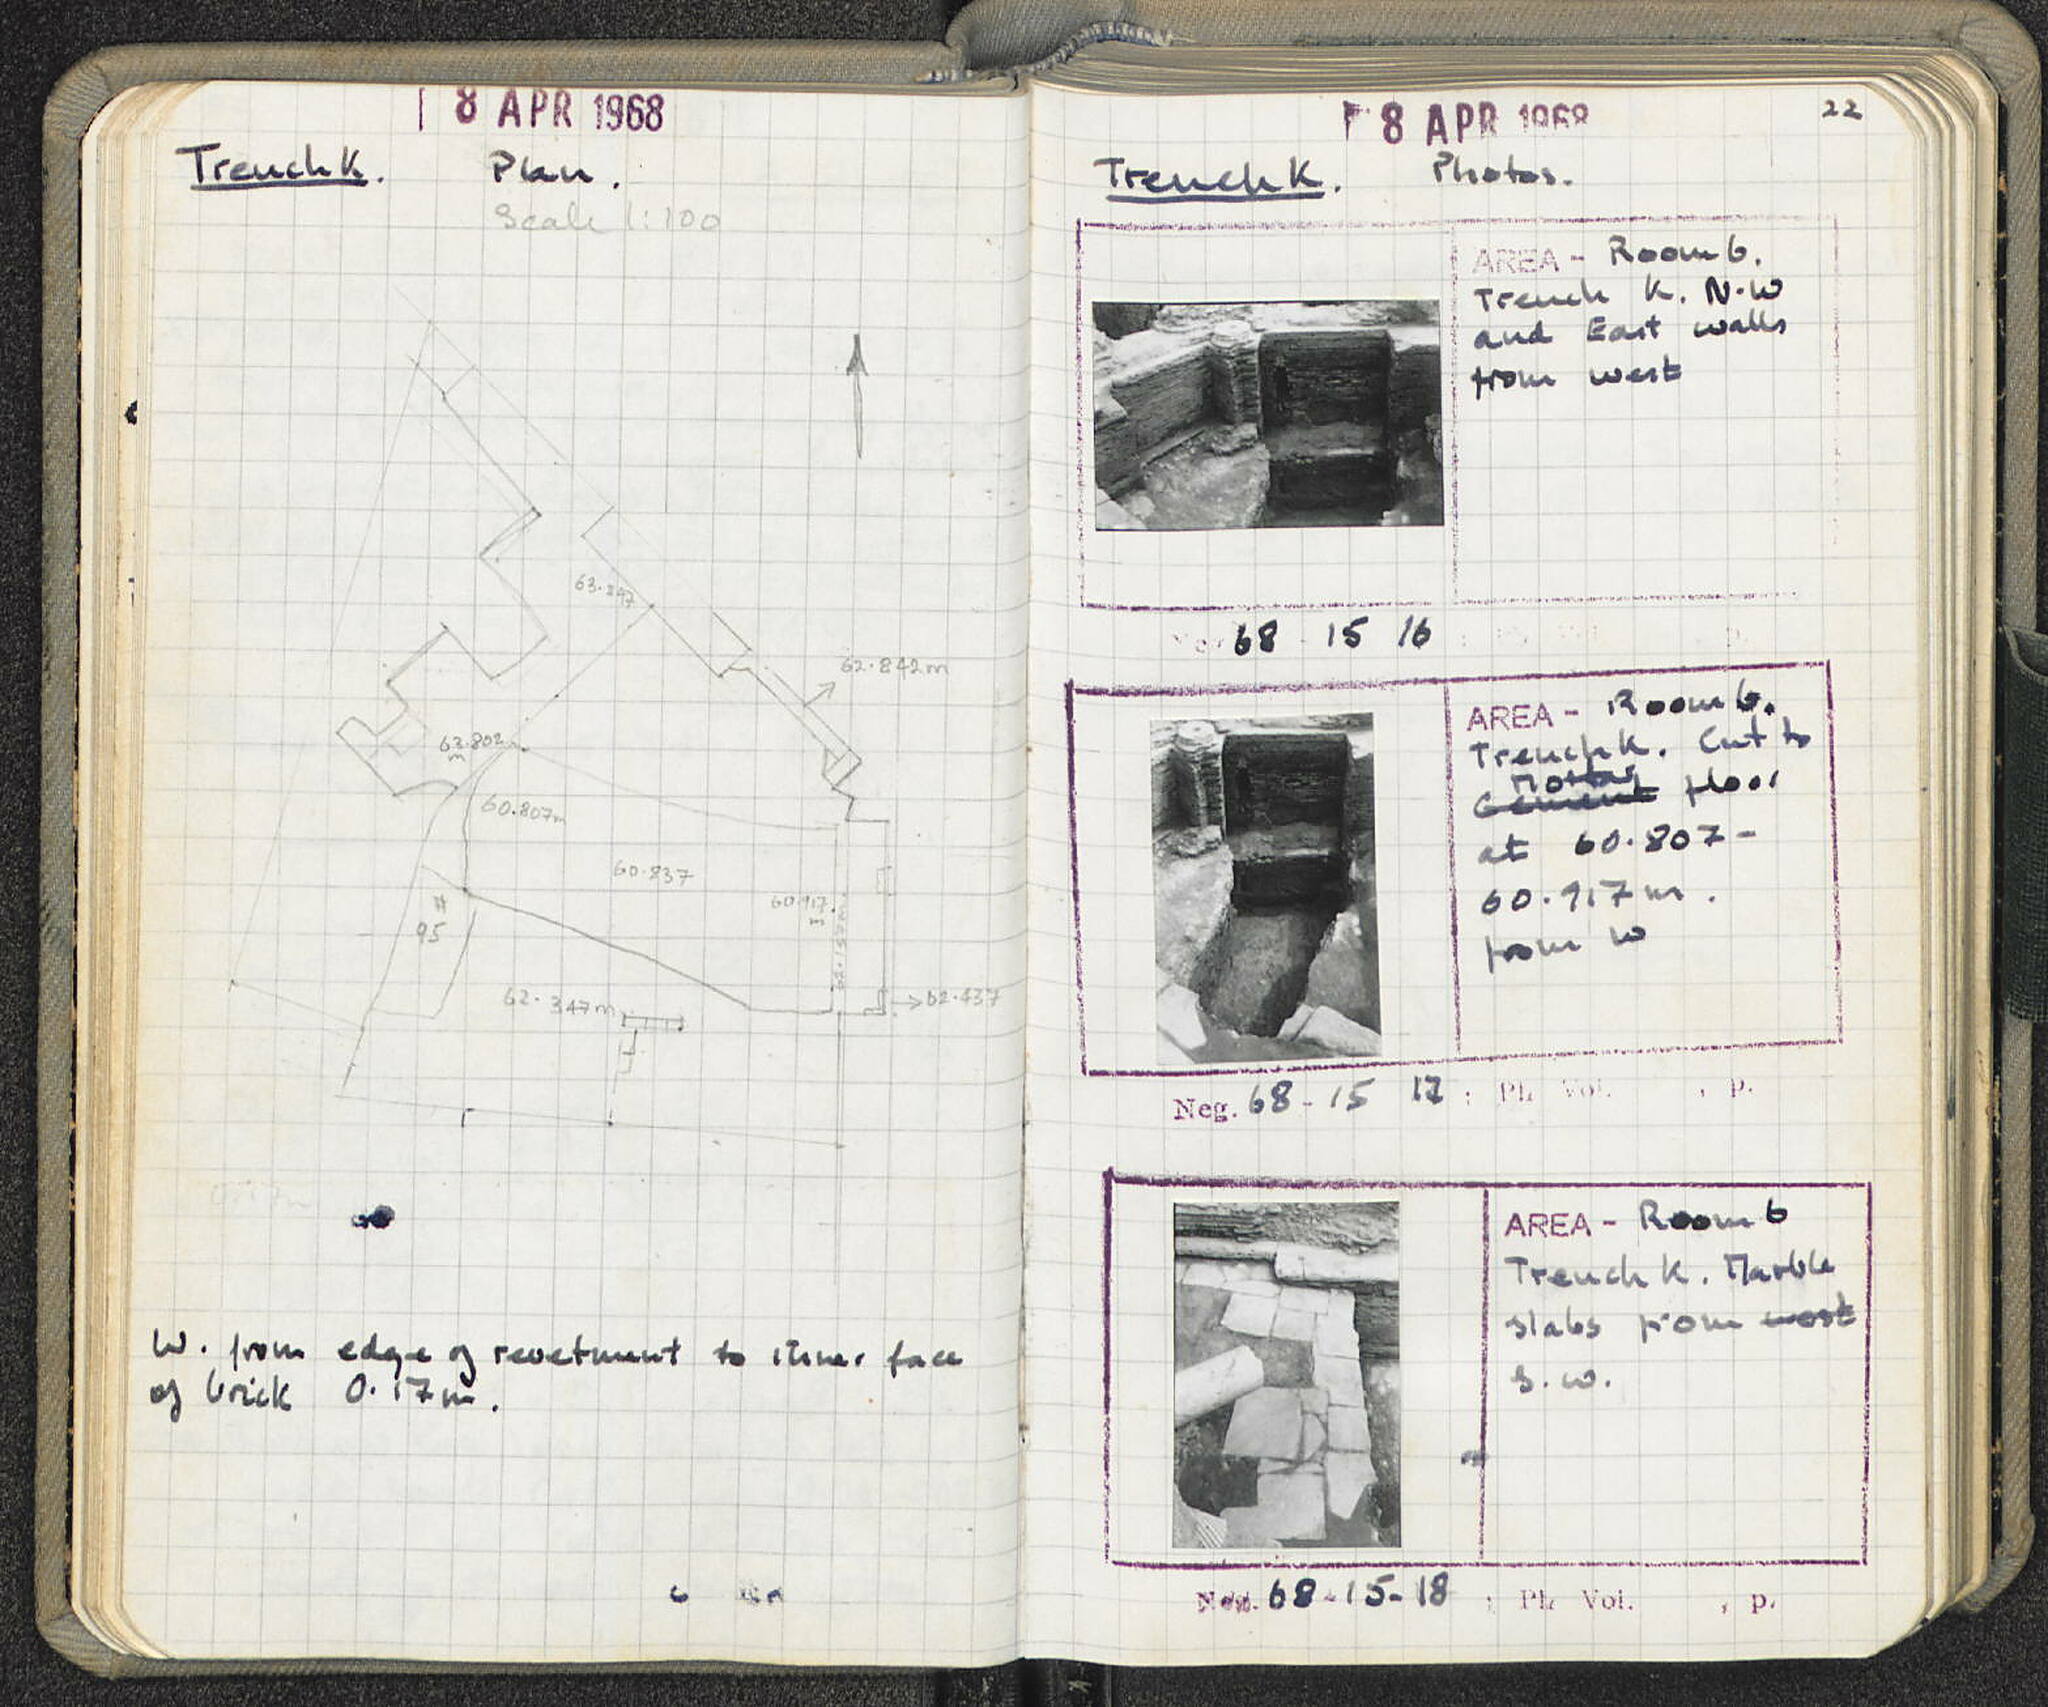 8 APR 1968
Trench K. Plan.
Scale 1:100
62.842m
60.807m
60.837
60.917
m
# 95
62.347m
62.437
W. from edge of revetment to inner face
of brick 0.17m.
22
8 APR 1968
Trench K. Photos.
AREA - Room 6.
Trench K. N.W
and East walls
from west
68 - 15 16
p.
AREA - Room 6.
Trench K. Cut to
Mortar
Cement floor
at 60.807 -
60.917m.
from W
Neg. 68 - 15 17 ; Ph. Vol. , p.
AREA - Room 6
Trench K. Marble
slabs from west
S.W.
Neg. 68-15-18 ; Ph. Vol. , p.